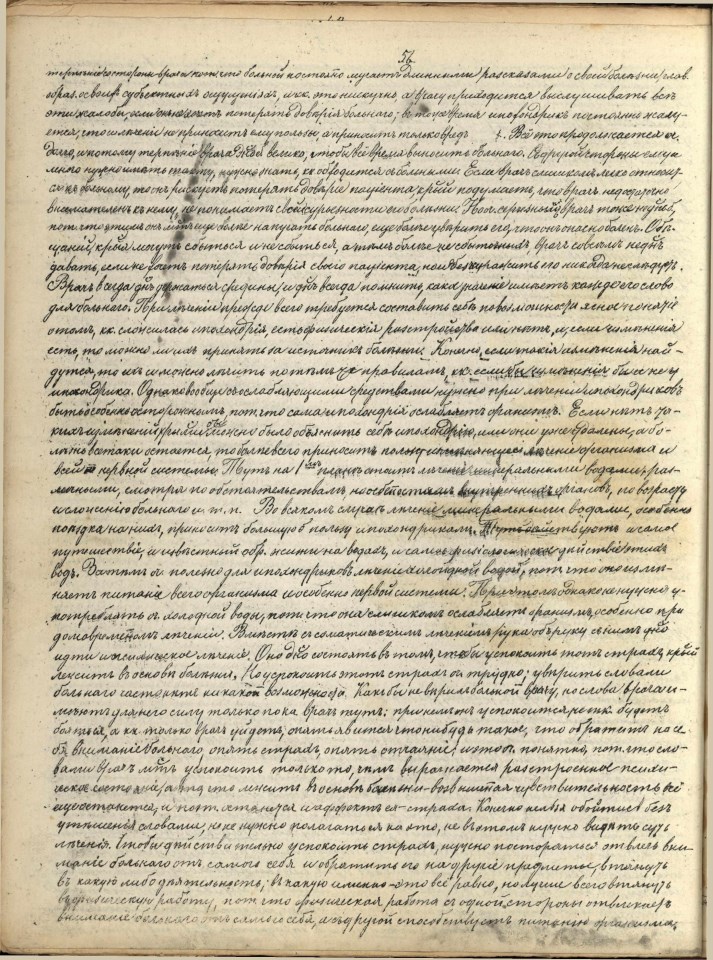 56.
терпѣніе со стороны врача пот. что больной постоянно мучаетъ длинными разсказами о своей болѣзни, глав.
образ. о своихъ субъективныхъ ощущеніяхъ, и кк. это ни скучно, а врачу приходится выслушивать всѣ
эти жалобы, если онъ не хочетъ потерять довѣрія больного; въ то же время ипохондрикъ постоянно жалу-
ется, что леченіе не приноситъ ему пользы, а приноситъ только вредъ. Всё это продолжается
долго, и потому терпѣніе врача велико, чтобы всё время выносить больного. Съ другой стороны ему
много нужно имѣть такту, нужно знать, кк. обходиться съ больными. Если врачъ слишкомъ легко относит-
ся къ больному, то онъ рискуетъ потерять довѣріе паціента, крый подумаетъ, что врачъ недостаточно
внимателенъ къ нему, не понимаетъ всей серьезности его болѣзни. Серьезный врачъ тоже
пот. что этимъ онъ еще больше напугать больного, еще болѣе увѣрить его, что онъ опасно боленъ. Обѣ-
щаній, крыя могутъ сбыться и не сбыться, а тѣмъ болѣе не сбыточныхъ, врачъ совсѣмъ не д.
давать, если не хочетъ потерять довѣрія своего паціента,
Врачъ всегда д. держаться средины, и д. всегда помнить, какое значеніе имѣетъ каждое его слово
для больного. При леченіи прежде всего требуется составить себѣ по возможности ясное понятіе
о томъ, кк. сложилась ипохондрія, есть физическія разстройства или нѣтъ, и, если измѣненія
есть, то можно ли ихъ принять за источникъ болѣзни. Конечно, если такія измѣненія най-
дутся, то ихъ и можно лечить по тѣмъ же правиламъ, кк. если бы измѣненія были не у
ипохондрика. Однако вообще съ ослабляющими средствами нужно при леченіи ипохондриковъ
быть особенно осторожнымъ, пот. что сама ипохондрія ослабляетъ организмъ. Если нѣтъ та-
кихъ измѣненій, крыми бы можно было объяснить себѣ ипохондрію, или они уже удалены, а бо-
лѣзнь всетаки остается, то болѣе всего приноситъ пользы леченіе организма и
всей нервной системы. Тутъ на 1 планѣ стоитъ леченіе минеральными водами, раз-
личными, смотря по обстоятельствамъ, по особенностямъ внутреннихъ органовъ, по возрасту
и сложенію больного и т. п. Во всякомъ случаѣ леченіе минеральными водами, особенно
поѣздка на нихъ, приноситъ большую пользу ипохондрикамъ. Тутъ дѣйствуютъ и самое
путешествіе, и извѣстный обр. жизни на водахъ, и само физіологическое дѣйствіе этихъ
водъ. Затѣмъ оч. полезно для ипохондриковъ леченіе холодной водой, пот. что оно измѣ-
няетъ питаніе всего организма и особенно нервной системы. При этомъ однако не нужно у-
потреблять оч. холодной воды, пот. что она слишкомъ ослабляетъ организмъ, особенно при
долговременномъ леченіи. Вмѣстѣ съ соматическимъ леченіемъ рука объ руку съ нимъ д.
идти и психическое леченіе. Оно д. состоять въ томъ, чтобы успокоить тотъ страхъ, крый
лежитъ въ основѣ болѣзни. Но успокоить этотъ страхъ оч. трудно; увѣрить словами
больного часто нѣтъ никакой возможности. Какъ бы не вѣрилъ больной врачу, но слова врача и-
мѣютъ для него силу только пока врачъ тутъ: при немъ онъ успокоится, не будетъ
бояться, а кк. только врачъ уйдетъ, опять явится что нибудь такое, что обратитъ на се-
бя вниманіе больного, опять страхъ, опять отчаяніе; и это понятно, пот. что сло-
вами врачъ м. успокоить только то, чѣмъ выражается разстроенное психи-
ческое состояніе, а вѣдь то, что лежитъ въ основѣ болѣзни - возвышенная чувствительность всё
еще остается, и пот. остается и аффектъ ея - страха. Конечно нельзя обойтись безъ
утѣшенія словами, но не нужно полагаться на это, не въ этомъ нужно видѣть суть
леченія. Чтобы дѣйствительно успокоить страхъ, нужно постараться отвлечь вни-
маніе больного отъ самого себя и обратить его на другіе предметы, втянуть
въ какую либо дѣятельность; въ какую именно - это всё равно, но лучше всего втянуть
въ физическую работу, пот. что физическая работа съ одной стороны отвлекаетъ
вниманіе больного отъ самого себя, а съ другой способствуетъ питанію организма,